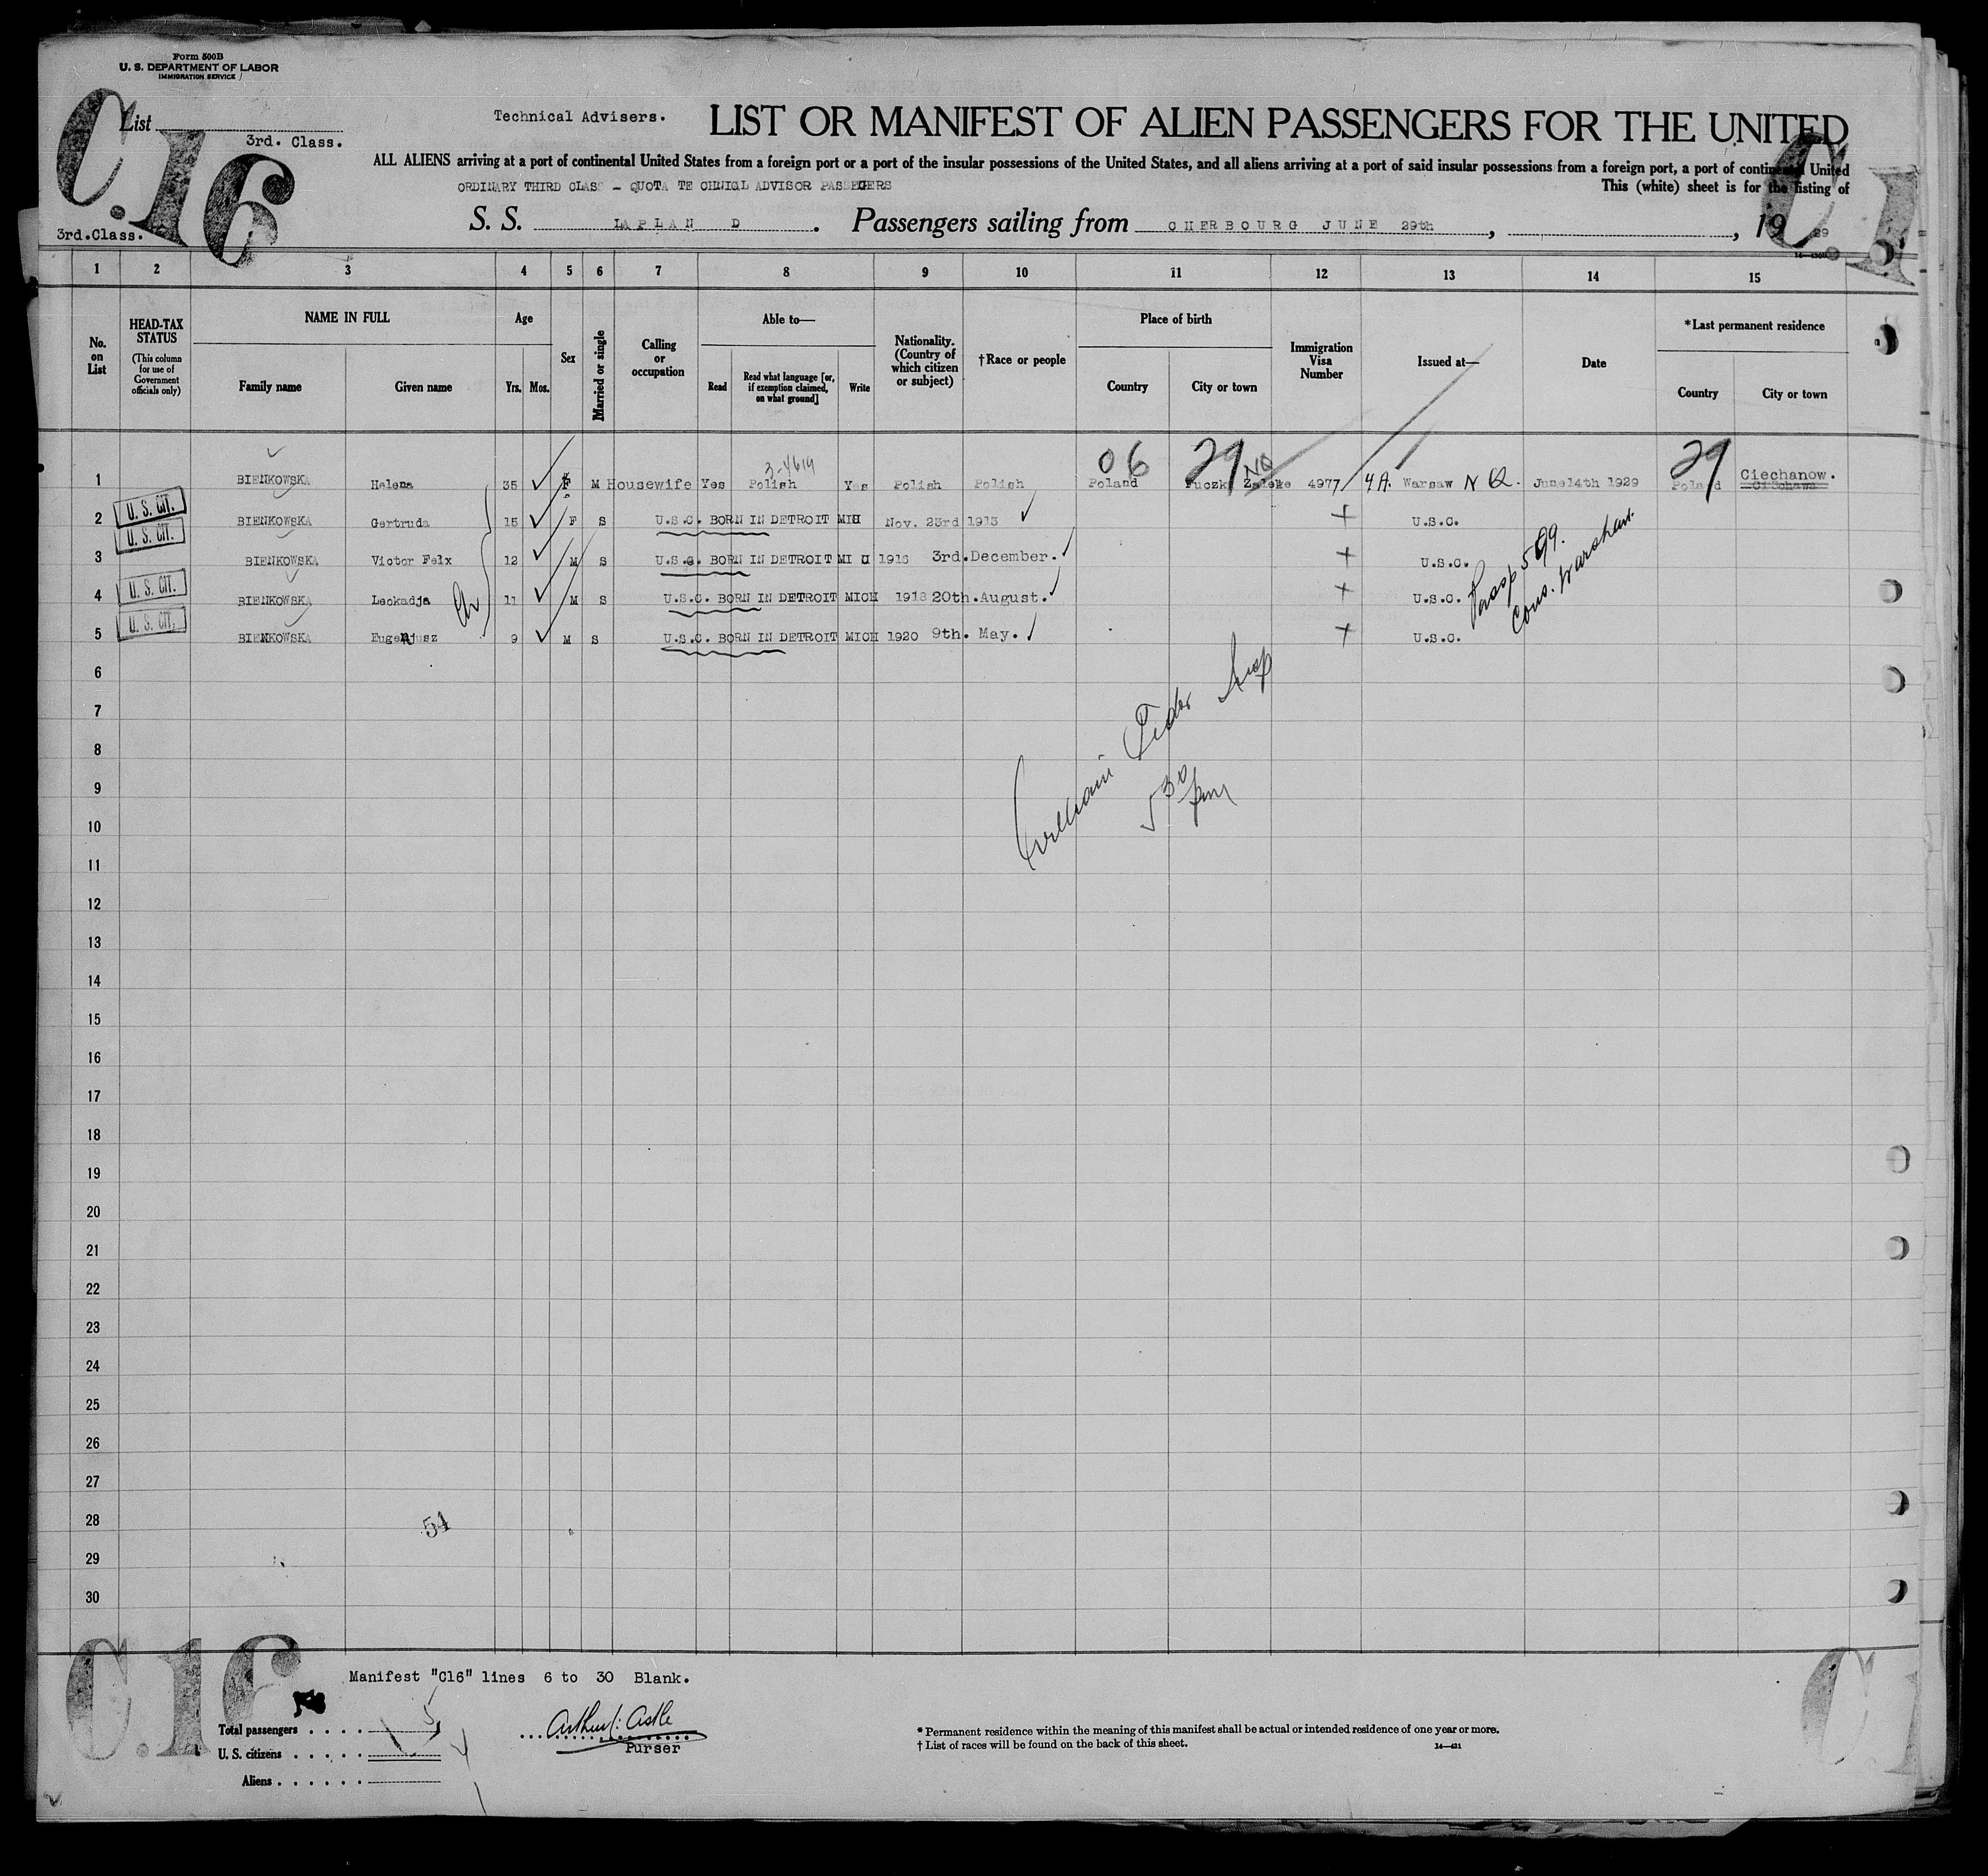 Form 500B
U. S. DEPARTMENT OF LABOR
IMMIGRATION SERVICE
List
3rd. Class.
C.16
3rd.Class.
Technical Advisers.
LIST OR MANIFEST OF ALIEN PASSENGERS FOR THE UNITED
ALL ALIENS arriving at a port of continental United States from a foreign port or a port of the insular possessions of the United States, and all aliens arriving at a port of said insular possessions from a foreign port, a port of continental United
ORDINARY THIRD CLASS - QUOTA TE CHNICAL ADVISOR PASSEGERS
This (white) sheet is for the listing of
S. S. LAPLAN D . Passengers sailing from CHERBOURG JUNE 29th , , 19 29
C.1
1 2 3 4 5 6 7 8 9 10 11 12 13 14 15
No. on List
HEAD-TAX STATUS
(This column for use of Government officials only)
NAME IN FULL
Family name
Given name
Age
Yrs. Mos.
Sex
Married or single
Calling or occupation
Able to—
Read
Read what language [or, if exemption claimed, on what ground]
Write
Nationality. (Country of which citizen or subject)
†Race or people
Place of birth
Country
City or town
Immigration Visa Number
Issued at—
Date
*Last permanent residence
Country
City or town
3-4619
06 29 NQ 29
1 BIENKOWSKA Helena 35 F M Housewife Yes Polish Yes Polish Polish Poland Zaleke 4977 4A. Warsaw N Q. June14th 1929 Poland Ciechanow.
U. S. CIT.
2 BIENKOWSKA Gertruda 15 F S U.S.C. BORN IN DETROIT MIH Nov. 23rd 1913 U.S.C.
U. S. CIT.
3 BIENKOWSKA Victor Felx 12 M S U.S.C. BORN IN DETROIT MI 1916 3rd.December. U.S.C.
U. S. CIT.
4 BIENKOWSKA Leokadja 11 M S U.S.C. BORN IN DETROIT MICH 1918 20th.August. U.S.C.
U. S. CIT.
5 BIENKOWSKA Eugenjusz 9 M S U.S.C. BORN IN DETROIT MICH 1920 9th. May. U.S.C.
Pasp 599.
Cons. Warshaw.
6
7
8
William Insp
5 30 pm
9
10
11
12
13
14
15
16
17
18
19
20
21
22
23
24
25
26
27
28
54
29
30
C.16
C.1
Manifest "C16" lines 6 to 30 Blank.
Total passengers 5
U. S. citizens
Aliens
Arthur J. Astle
Purser
* Permanent residence within the meaning of this manifest shall be actual or intended residence of one year or more.
† List of races will be found on the back of this sheet.
14—421